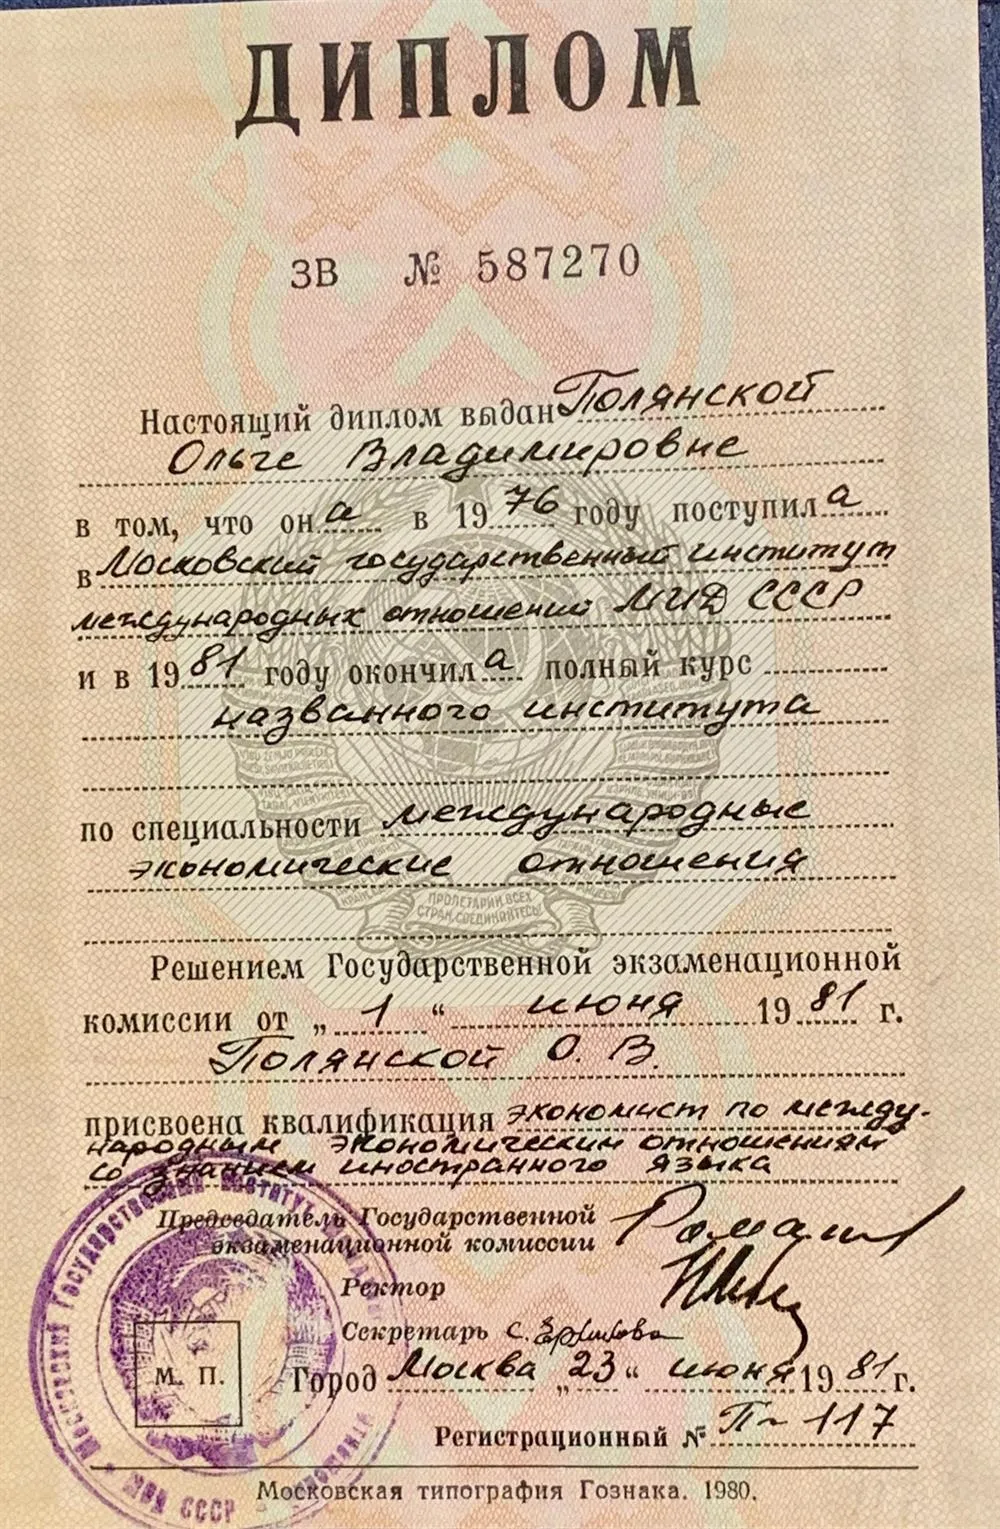 ДИПЛОМ
ЗВ № 587270
Настоящий диплом выдан Полянской
Ольге Владимировне
в том, что она в 1976 году поступила
в Московский государственный институт
международных отношений МИД СССР
и в 1981 году окончила полный курс
названного института
по специальности международные
экономические отношения
ПРОЛЕТАРИИ ВСЕХ
СТРАН, СОЕДИНЯЙТЕСЬ!
Решением Государственной экзаменационной
комиссии от „1“ июня 1981 г.
Полянской О. В.
присвоена квалификация экономист по между-
народным экономическим отношениям
со знанием иностранного языка
Председатель Государственной
экзаменационной комиссии
Ректор
Секретарь С.
М. П.
Город Москва „23“ июня 1981 г.
Регистрационный № П-117
Московский Государственный Институт
МИД СССР
Московская типография Гознака. 1980.